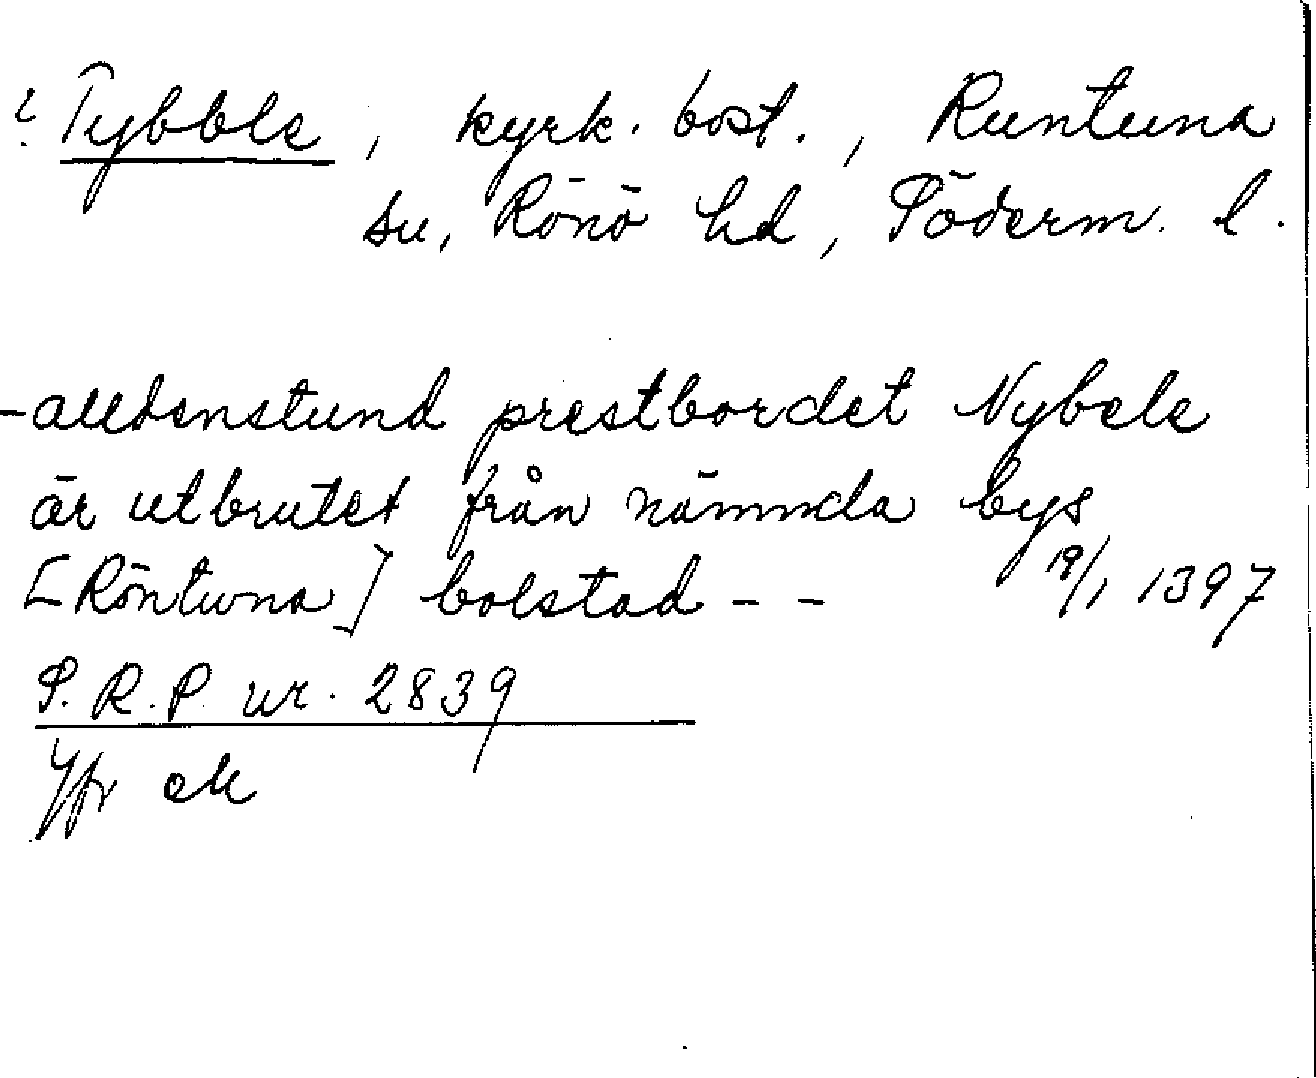 ? Tybble, kyrk. bost., Runtuna
sn, Rönö hd, Söderm. l.
-alldenstund prestbordet Nybele
är utbrutet från nämnda bys
[Röntuna] bolstad - - 19/1 1397
S.R.P nr. 2839
Jfr